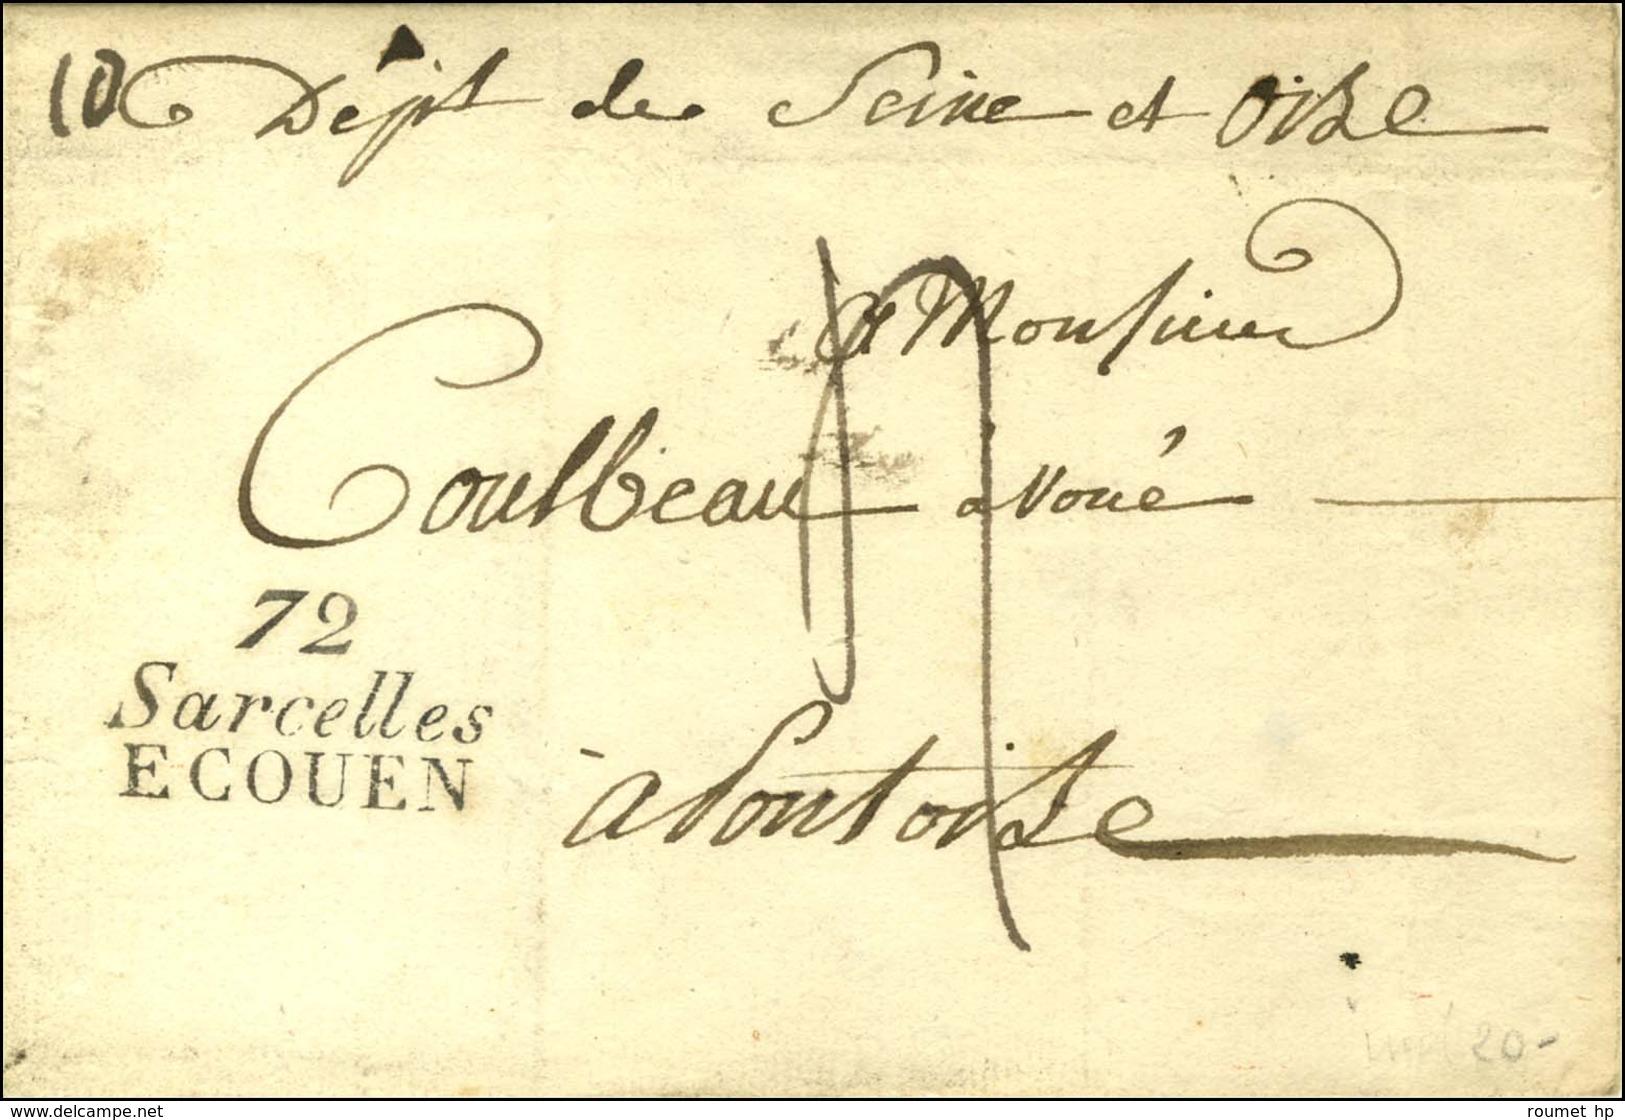 10 Dépt de Seine et Oise
A Monsieur
Coulbeau avoué
72
Sarcelles
ECOUEN
a Pontoise
20-
delcampe.net
roumet hp